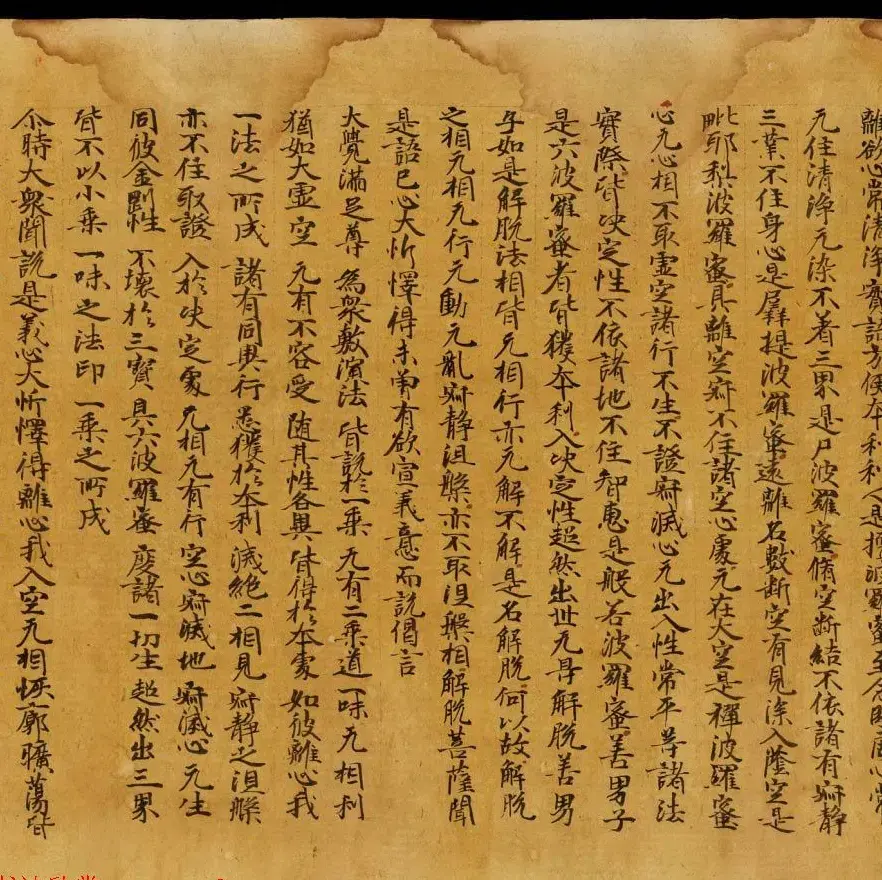 離欲心常清淨實語方便本利利人是檀波羅蜜至念堅固心常
无住清淨无染不着三界是尸波羅蜜脩空断結不依諸有寂静
三業不住身心是羼提波羅蜜遠離名數断空有見深入蔭空是
毗耶梨波羅蜜具離空寂不住諸空心處无在大空是禪波羅蜜
心无心相不取虚空諸行不生不證寂滅心无出入性常平等諸法
實際皆决定性不依諸地不住智惠是般若波羅蜜善男子
是六波羅蜜者皆獲本利入决定性超然出世无㝵解脱善男
子如是解脱法相皆无相行亦无解不解是名解脱何以故解脱
之相无相无行无動无亂寂静涅槃亦不取涅槃相解脱菩薩聞
是語已心大忻懌得未曾有欲宣義意而說偈言
大覺滿足尊 為衆敷演法 皆說於一乘 无有二乘道 一味无相利
猶如大虚空 无有不容受 随其性各異 皆得於本處 如彼離心我
一法之所成 諸有同異行 悉獲於本利 滅絶二相見 寂静之涅槃
亦不住取證 入於决定處 无相无有行 空心寂滅地 寂滅心无生
同彼金剛性 不壞於三寶 具六波羅蜜 度諸一切生 超然出三界
皆不以小乘 一味之法印 一乘之所成
尒時大衆聞說是義心大忻懌得離心我入空无相恢廓曠蕩皆